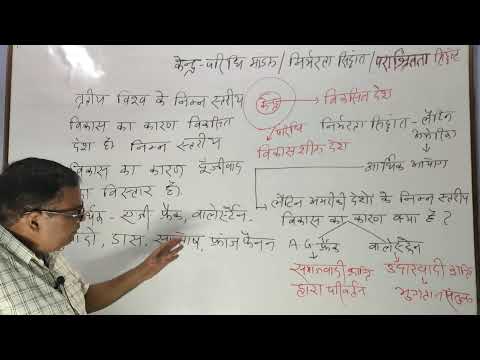 केन्द्र-परिधि माडल / निर्भरता सिद्धांत / पराश्रितता सिद्धांत
तृतीय विश्व के निम्न स्तरीय
विकास का कारण विकसित
देश है। निम्न स्तरीय
विकास का कारण पूँजीवाद
का विस्तार है।
एजी फ्रैंक, वालेस्टैन
डास, फ्रांज फैनन
केन्द्र
विकसित देश
परिधि
विकासशील देश
निर्भरता सिद्धांत - लैटिन
अमरीका
आर्थिक आयोग
लैटिन अमरीकी देशो के निम्न स्तरीय
विकास का कारण क्या है ?
A G फ्रैंक
वालेस्टैन
समाजवादी क्रांति
द्वारा परिवर्तन
उदारवादी क्रांति
भुगतान संतुलन